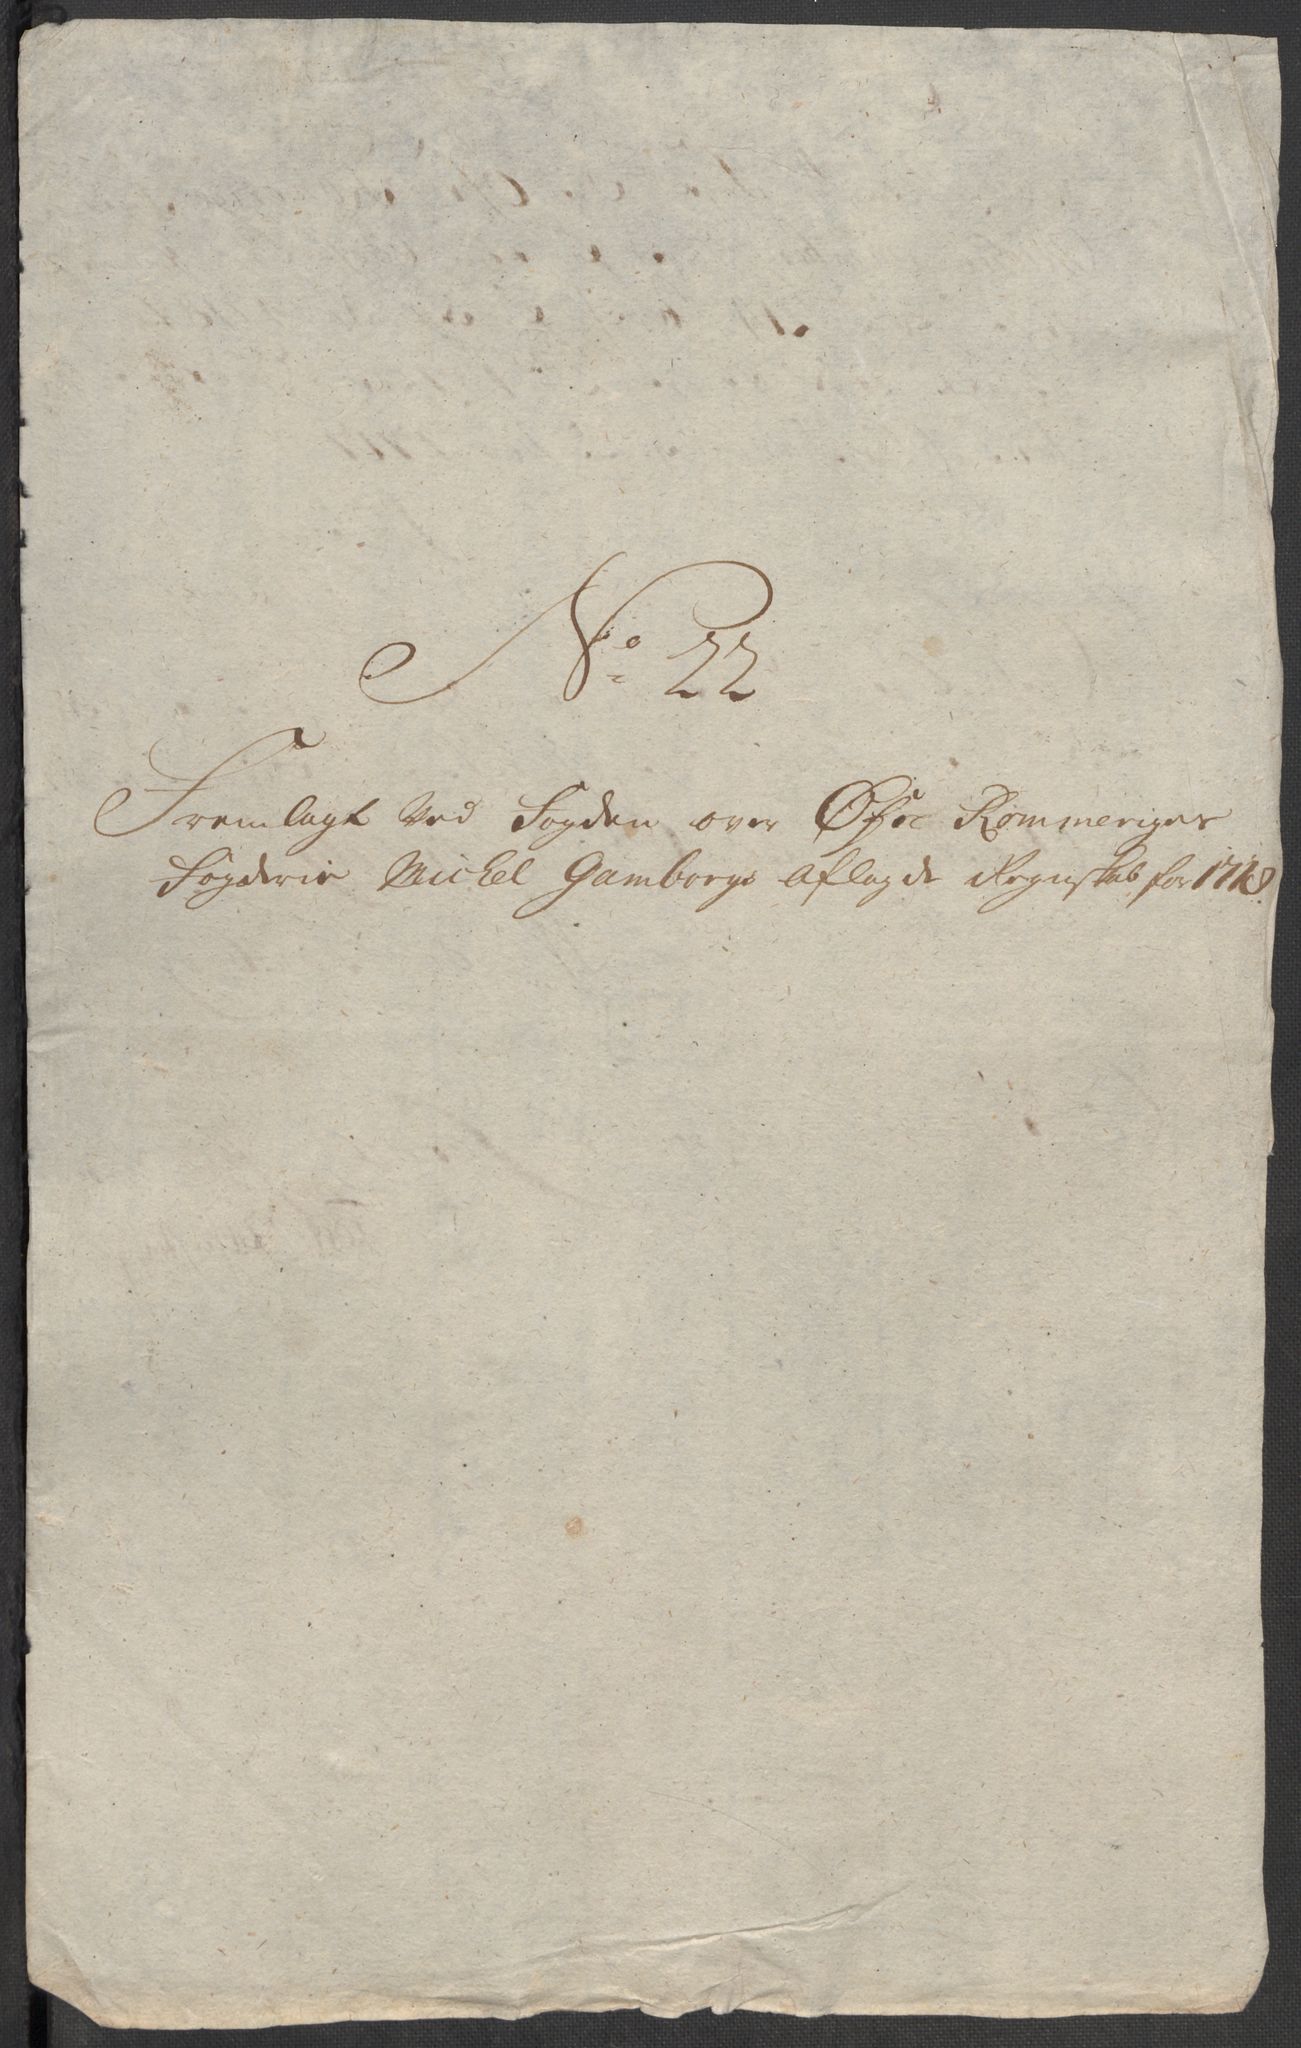 No 22
Fremlagt Ved Fogden over Øfre Rommeriges
Fogderie Michel Gamborgs Aflagde Regnskab for 1718